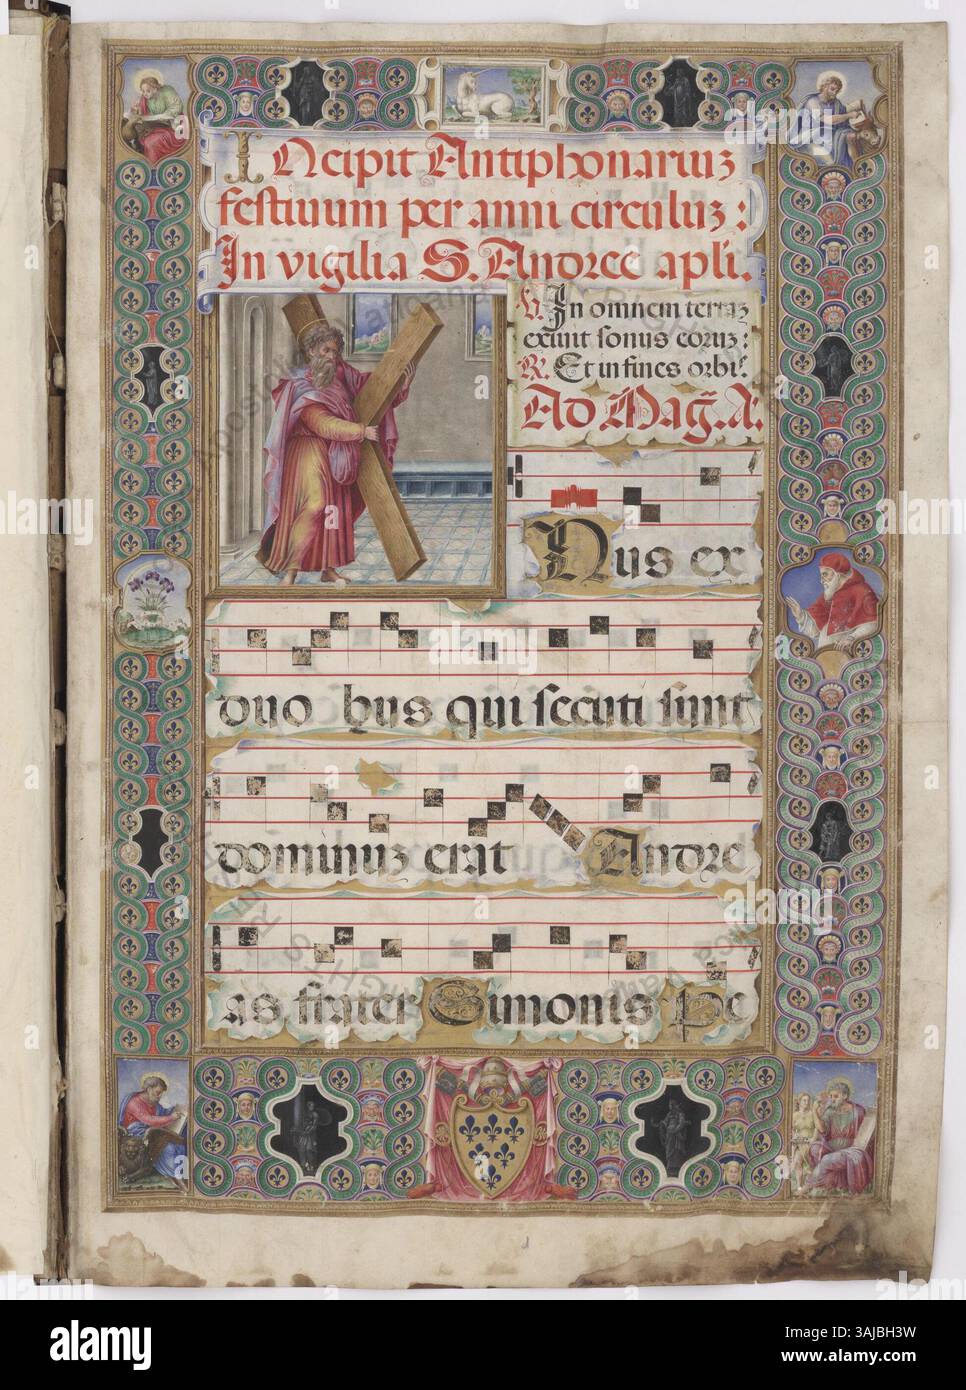 INcipit Antiphonariuʒ
festiuum per anni circuluʒ :
In vigilia S. Andree apli.
V. In omnem terraʒ
exiuit sonus eoruʒ :
R. Et in fines orbi.
AD Mag. A.
Nus ex
duo bus qui secuti sunt
dominuʒ erat Andre
as frater Simonis Pe
alamy
Image ID: 3AJBH3W
www.alamy.com